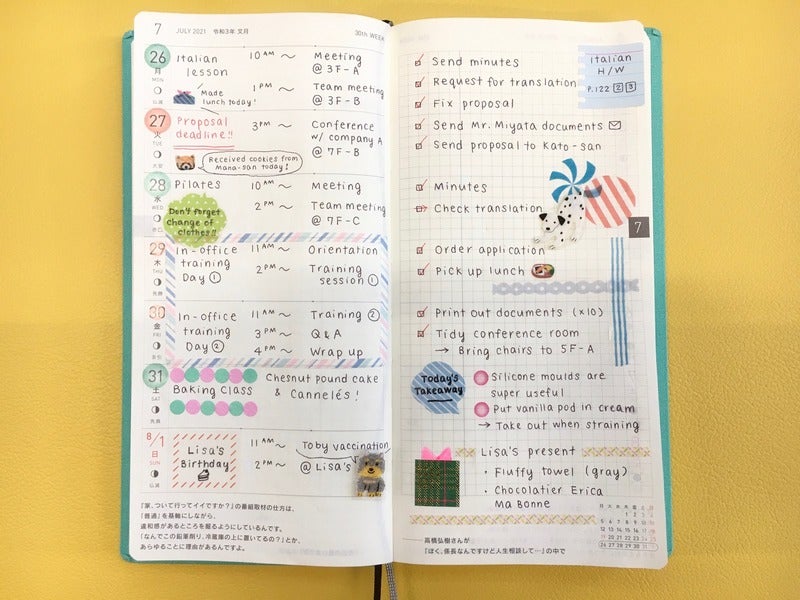 7 JULY 2021 令和3年 文月
30th WEEK
26
月
MON
仏滅
Italian
lesson
Made
lunch today!
10 AM ~ Meeting
@ 3F-A
1 PM ~ Team meeting
@ 3F-B
27
火
TUE
大安
Proposal
deadline!!
Received cookies from
Mana-san today!
3 PM ~ Conference
w/ company A
@ 7F-B
28
水
WED
赤口
Pilates
Don't forget
change of
clothes!!
10 AM ~ Meeting
2 PM ~ Team meeting
@ 7F-C
29
木
THU
先勝
In-office
training
Day ①
11 AM ~ Orientation
2 PM ~ Training
session ①
30
金
FRI
友引
In-office
training
Day ②
11 AM ~ Training ②
3 PM ~ Q&A
4 PM ~ Wrap up
31
土
SAT
先負
Baking Class
Chesnut pound cake
& Cannelés!
8/1
日
SUN
仏滅
Lisa's
Birthday
11 AM ~ Toby vaccination
2 PM ~ @ Lisa's
『家、ついて行ってイイですか？』の番組取材の仕方は、
「普通」を基軸にしながら、
違和感があるところを掘るようにしているんです。
「なんでこの鉛筆削り、冷蔵庫の上に置いてるの？」とか、
あらゆることに理由があるんですよ。
Send minutes
Request for translation
Fix proposal
Italian
H/W
P.122 2 3
Send Mr. Miyata documents
Send proposal to Kato-san
Minutes
Check translation
7
Order application
Pick up lunch
Print out documents (x10)
Tidy conference room
→ Bring chairs to 5F-A
Today's
Takeaway
Silicone moulds are
super useful
Put vanilla pod in cream
→ Take out when straining
Lisa's present
・ Fluffy towel (gray)
・ Chocolatier Erica
Ma Bonne
月 火 水 木 金 土 日
1 2 3 4
5 6 7 8 9 10 11
12 13 14 15 16 17 18
19 20 21 22 23 24 25
26 27 28 29 30 31 1
——高橋弘樹さんが
『ぼく、係長なんですけど人生相談して…』の中で